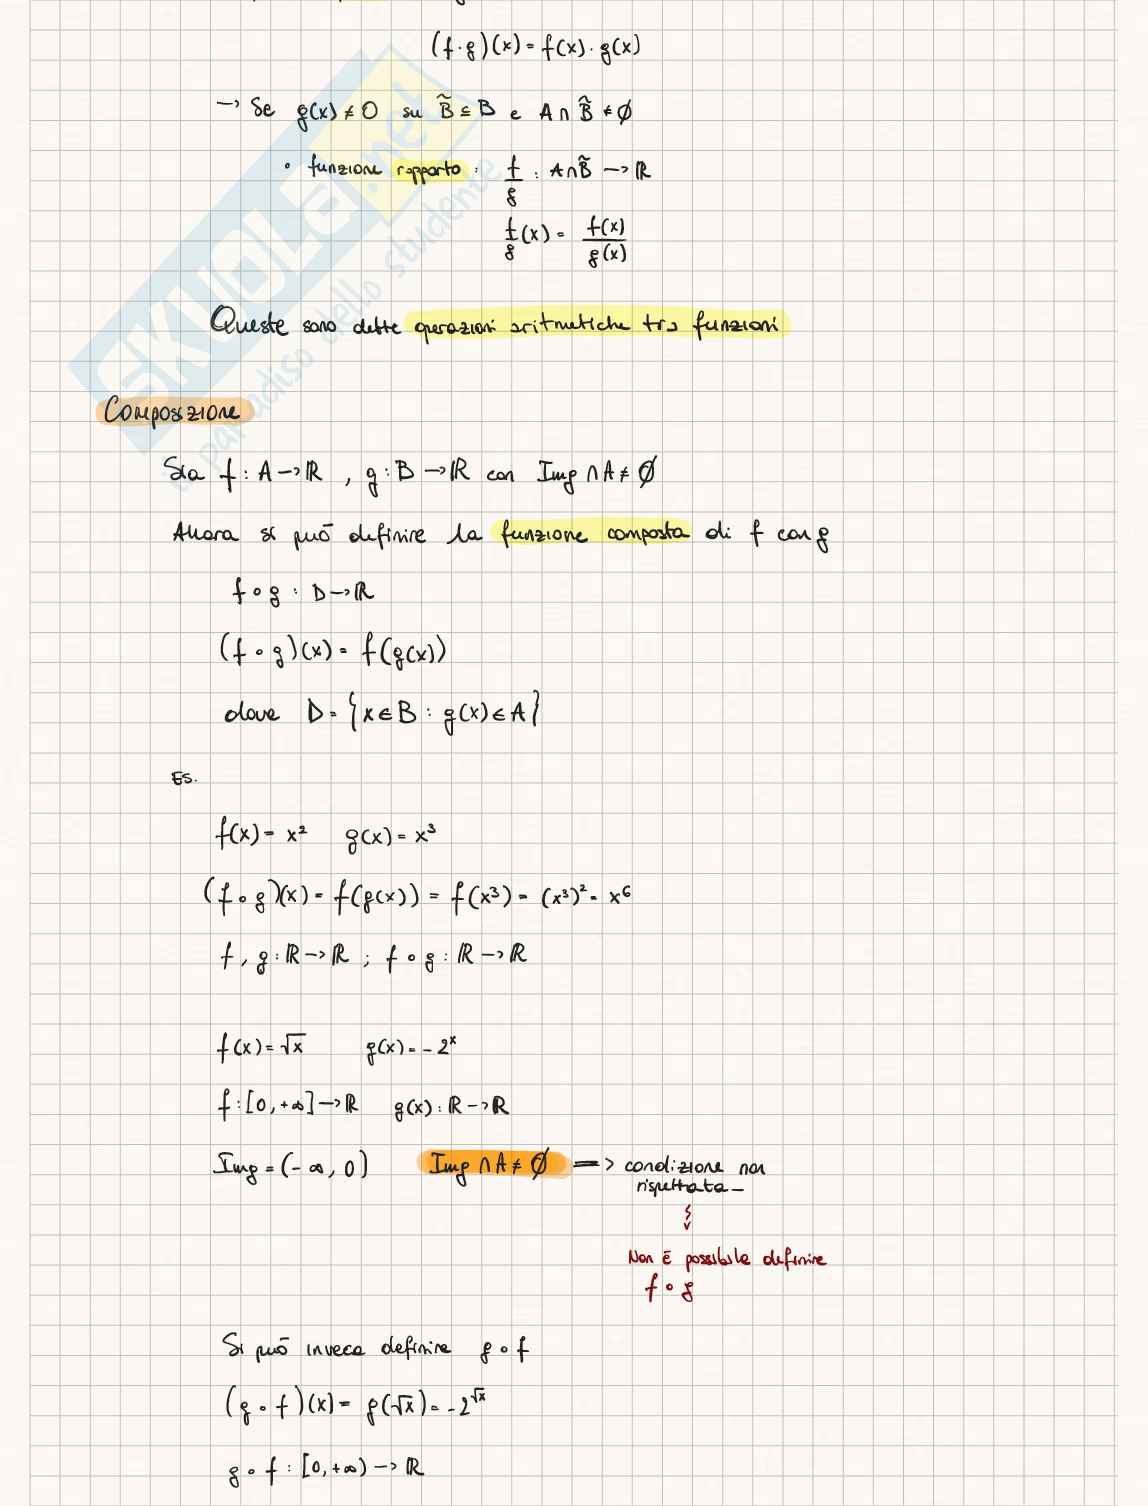 (f·g)(x) = f(x)·g(x)
→ Se g(x) ≠ 0 su B̃ ⊆ B e A ∩ B̃ ≠ ∅
• funzione rapporto : f/g : A∩B̃ → ℝ
f/g (x) = f(x)/g(x)
Queste sono dette operazioni aritmetiche tra funzioni
Composizione
Sia f : A → ℝ , g : B → ℝ con Im g ∩ A ≠ ∅
Allora si può definire la funzione composta di f con g
f ∘ g : D → ℝ
(f ∘ g)(x) = f(g(x))
dove D = {x ∈ B : g(x) ∈ A}
ES.
f(x) = x² g(x) = x³
(f ∘ g)(x) = f(g(x)) = f(x³) = (x³)² = x⁶
f, g : ℝ → ℝ ; f ∘ g : ℝ → ℝ
f(x) = √x g(x) = -2ˣ
f : [0, +∞] → ℝ g(x) : ℝ → ℝ
Im g = (-∞, 0) Im g ∩ A ≠ ∅ => condizione non
rispettata
Non è possibile definire
f ∘ g
Si può invece definire g ∘ f
(g ∘ f)(x) = g(√x) = -2^√x
g ∘ f : [0, +∞) → ℝ
SKUOLA.net
il paradiso dello studente